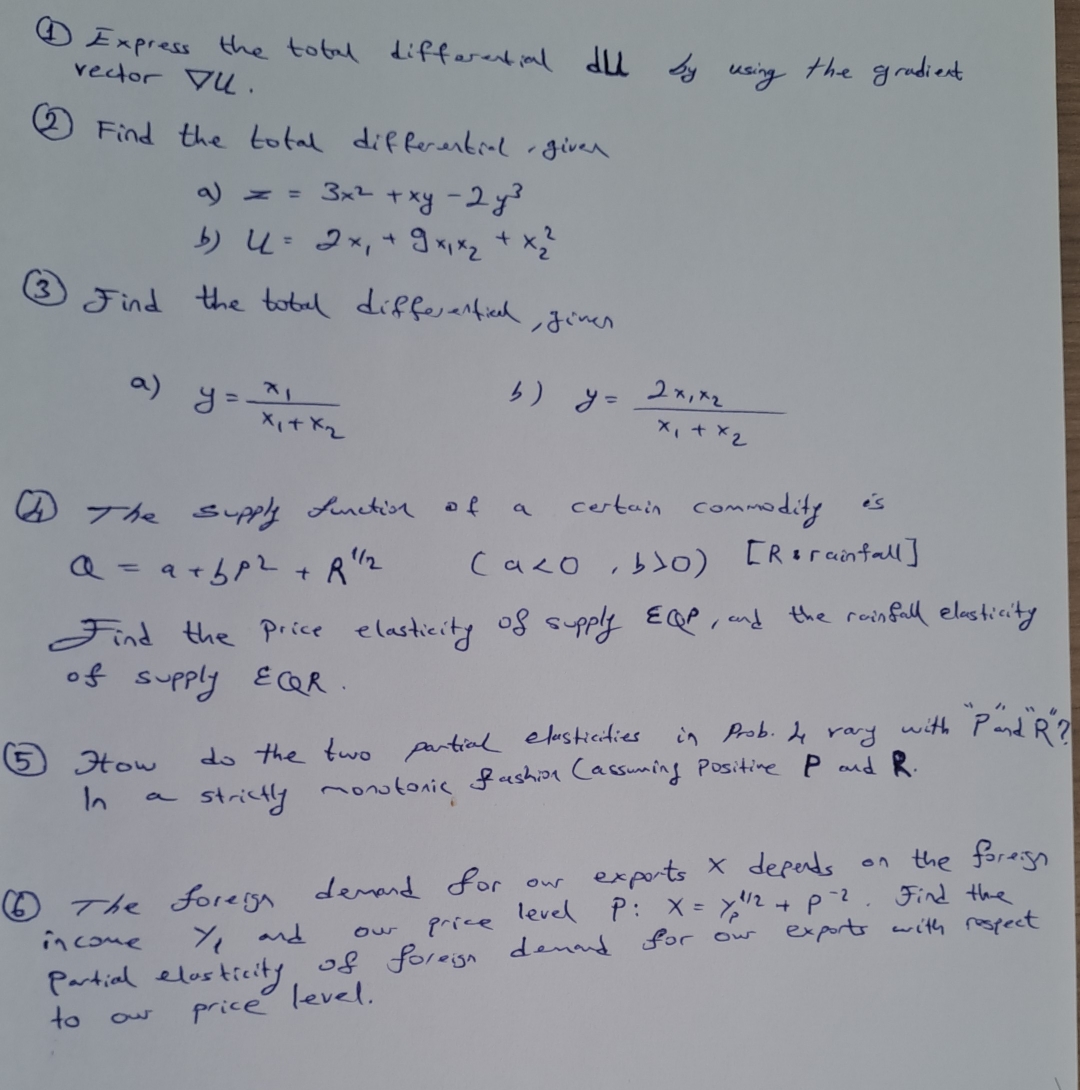 ① Express the total differential dU by using the gradient
vector ∇U.
② Find the total differential, given
a) z = 3x² + xy - 2y³
b) U = 2x₁ + 9x₁x₂ + x₂²
③ Find the total differential, given
a) y = x₁ / (x₁ + x₂)    b) y = 2x₁x₂ / (x₁ + x₂)
④ The supply function of a certain commodity is
Q = a + bP² + R^1/2 (a<0, b>0) [R: rainfall]
Find the Price elasticity of supply εQP, and the rainfall elasticity
of supply εQR.
⑤ How do the two partial elasticities in Prob. 4 vary with "P" and "R"?
In a strictly monotonic fashion (assuming positive P and R.
⑥ The foreign demand for our exports X depends on the foreign
income Yf and our price level P: X = Yf^1/2 + P^-2. Find the
Partial elasticity of foreign demand for our exports with respect
to our price level.